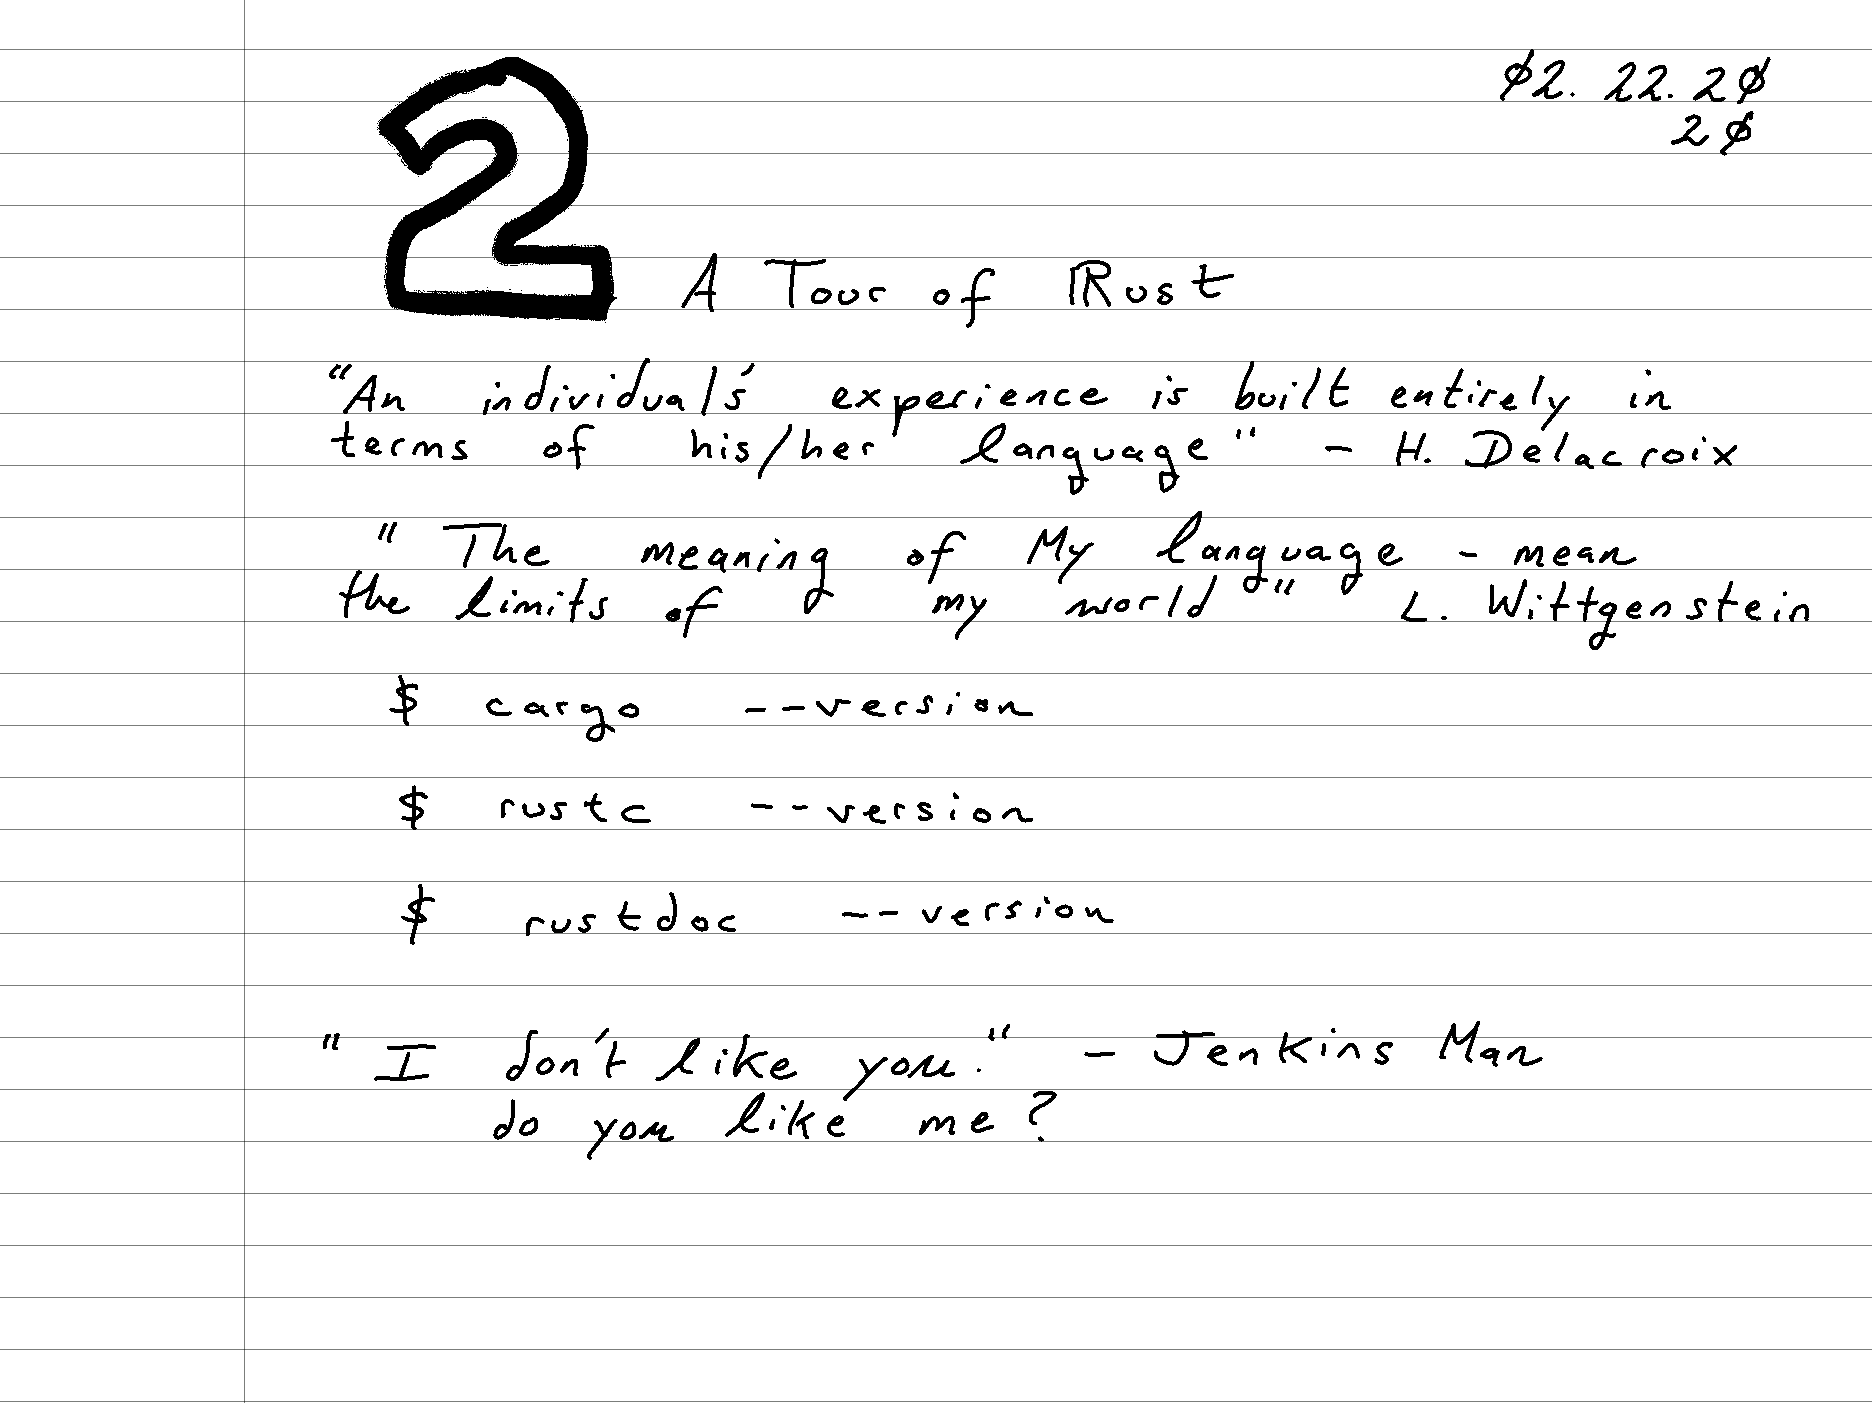 02. 22. 20
20
2 A Tour of Rust
"An individual's experience is built entirely in
terms of his/her language" - H. Delacroix
"The meaning of My language - mean
the limits of my world" L. Wittgenstein
$ cargo --version
$ rustc --version
$ rustdoc --version
"I don't like you." - Jenkins Man
do you like me?